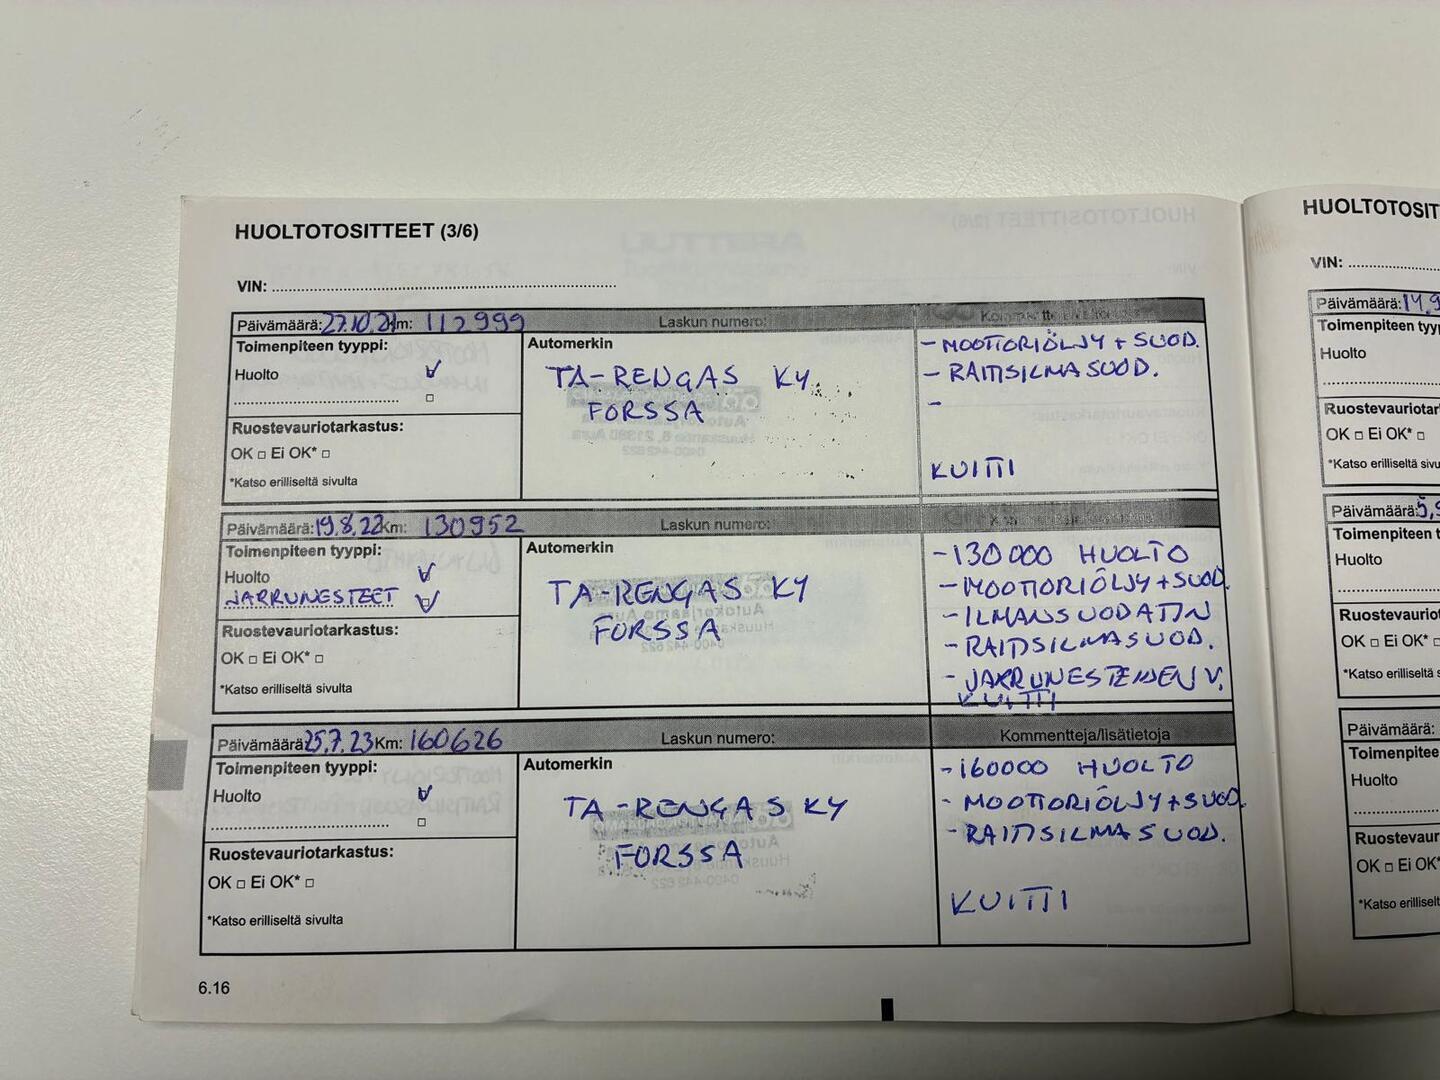 HUOLTOTOSITTEET (3/6)
VIN:
Päivämäärä: 27.10.21 Km: 112999 Laskun numero:
Toimenpiteen tyyppi:
Huolto
Ruostevauriotarkastus:
OK □ Ei OK* □
*Katso erilliseltä sivulta
Automerkin
TA-RENGAS KY
FORSSA
- MOOTTORIÖLJY + SUOD.
- RAITISILMASUOD.
-
KUITTI
Päivämäärä: 19.8.22 Km: 130952 Laskun numero:
Toimenpiteen tyyppi:
Huolto
JARRUNESTEET
Ruostevauriotarkastus:
OK □ Ei OK* □
*Katso erilliseltä sivulta
Automerkin
TA-RENGAS KY
FORSSA
- 130 000 HUOLTO
- MOOTTORIÖLJY + SUOD.
- ILMANSUODATIN
- RAITISILMASUOD.
- JARRUNESTEIDEN V.
KUITTI
Päivämäärä 25.7.23 Km: 160626 Laskun numero: Kommentteja/lisätietoja
Toimenpiteen tyyppi:
Huolto
Ruostevauriotarkastus:
OK □ Ei OK* □
*Katso erilliseltä sivulta
Automerkin
TA-RENGAS KY
FORSSA
- 160000 HUOLTO
- MOOTTORIÖLJY + SUOD.
- RAITISILMASUOD.
KUITTI
6.16
HUOLTOTOSIT
VIN:
Päivämäärä: 14.9
Toimenpiteen tyy
Huolto
Ruostevauriotar
OK □ Ei OK* □
*Katso erilliseltä s
Päivämäärä: 5.9
Toimenpiteen t
Huolto
Ruostevauriot
OK □ Ei OK* □
*Katso erilliseltä s
Päivämäärä:
Toimenpitee
Huolto
Ruostevaur
OK □ Ei OK
*Katso erillisel